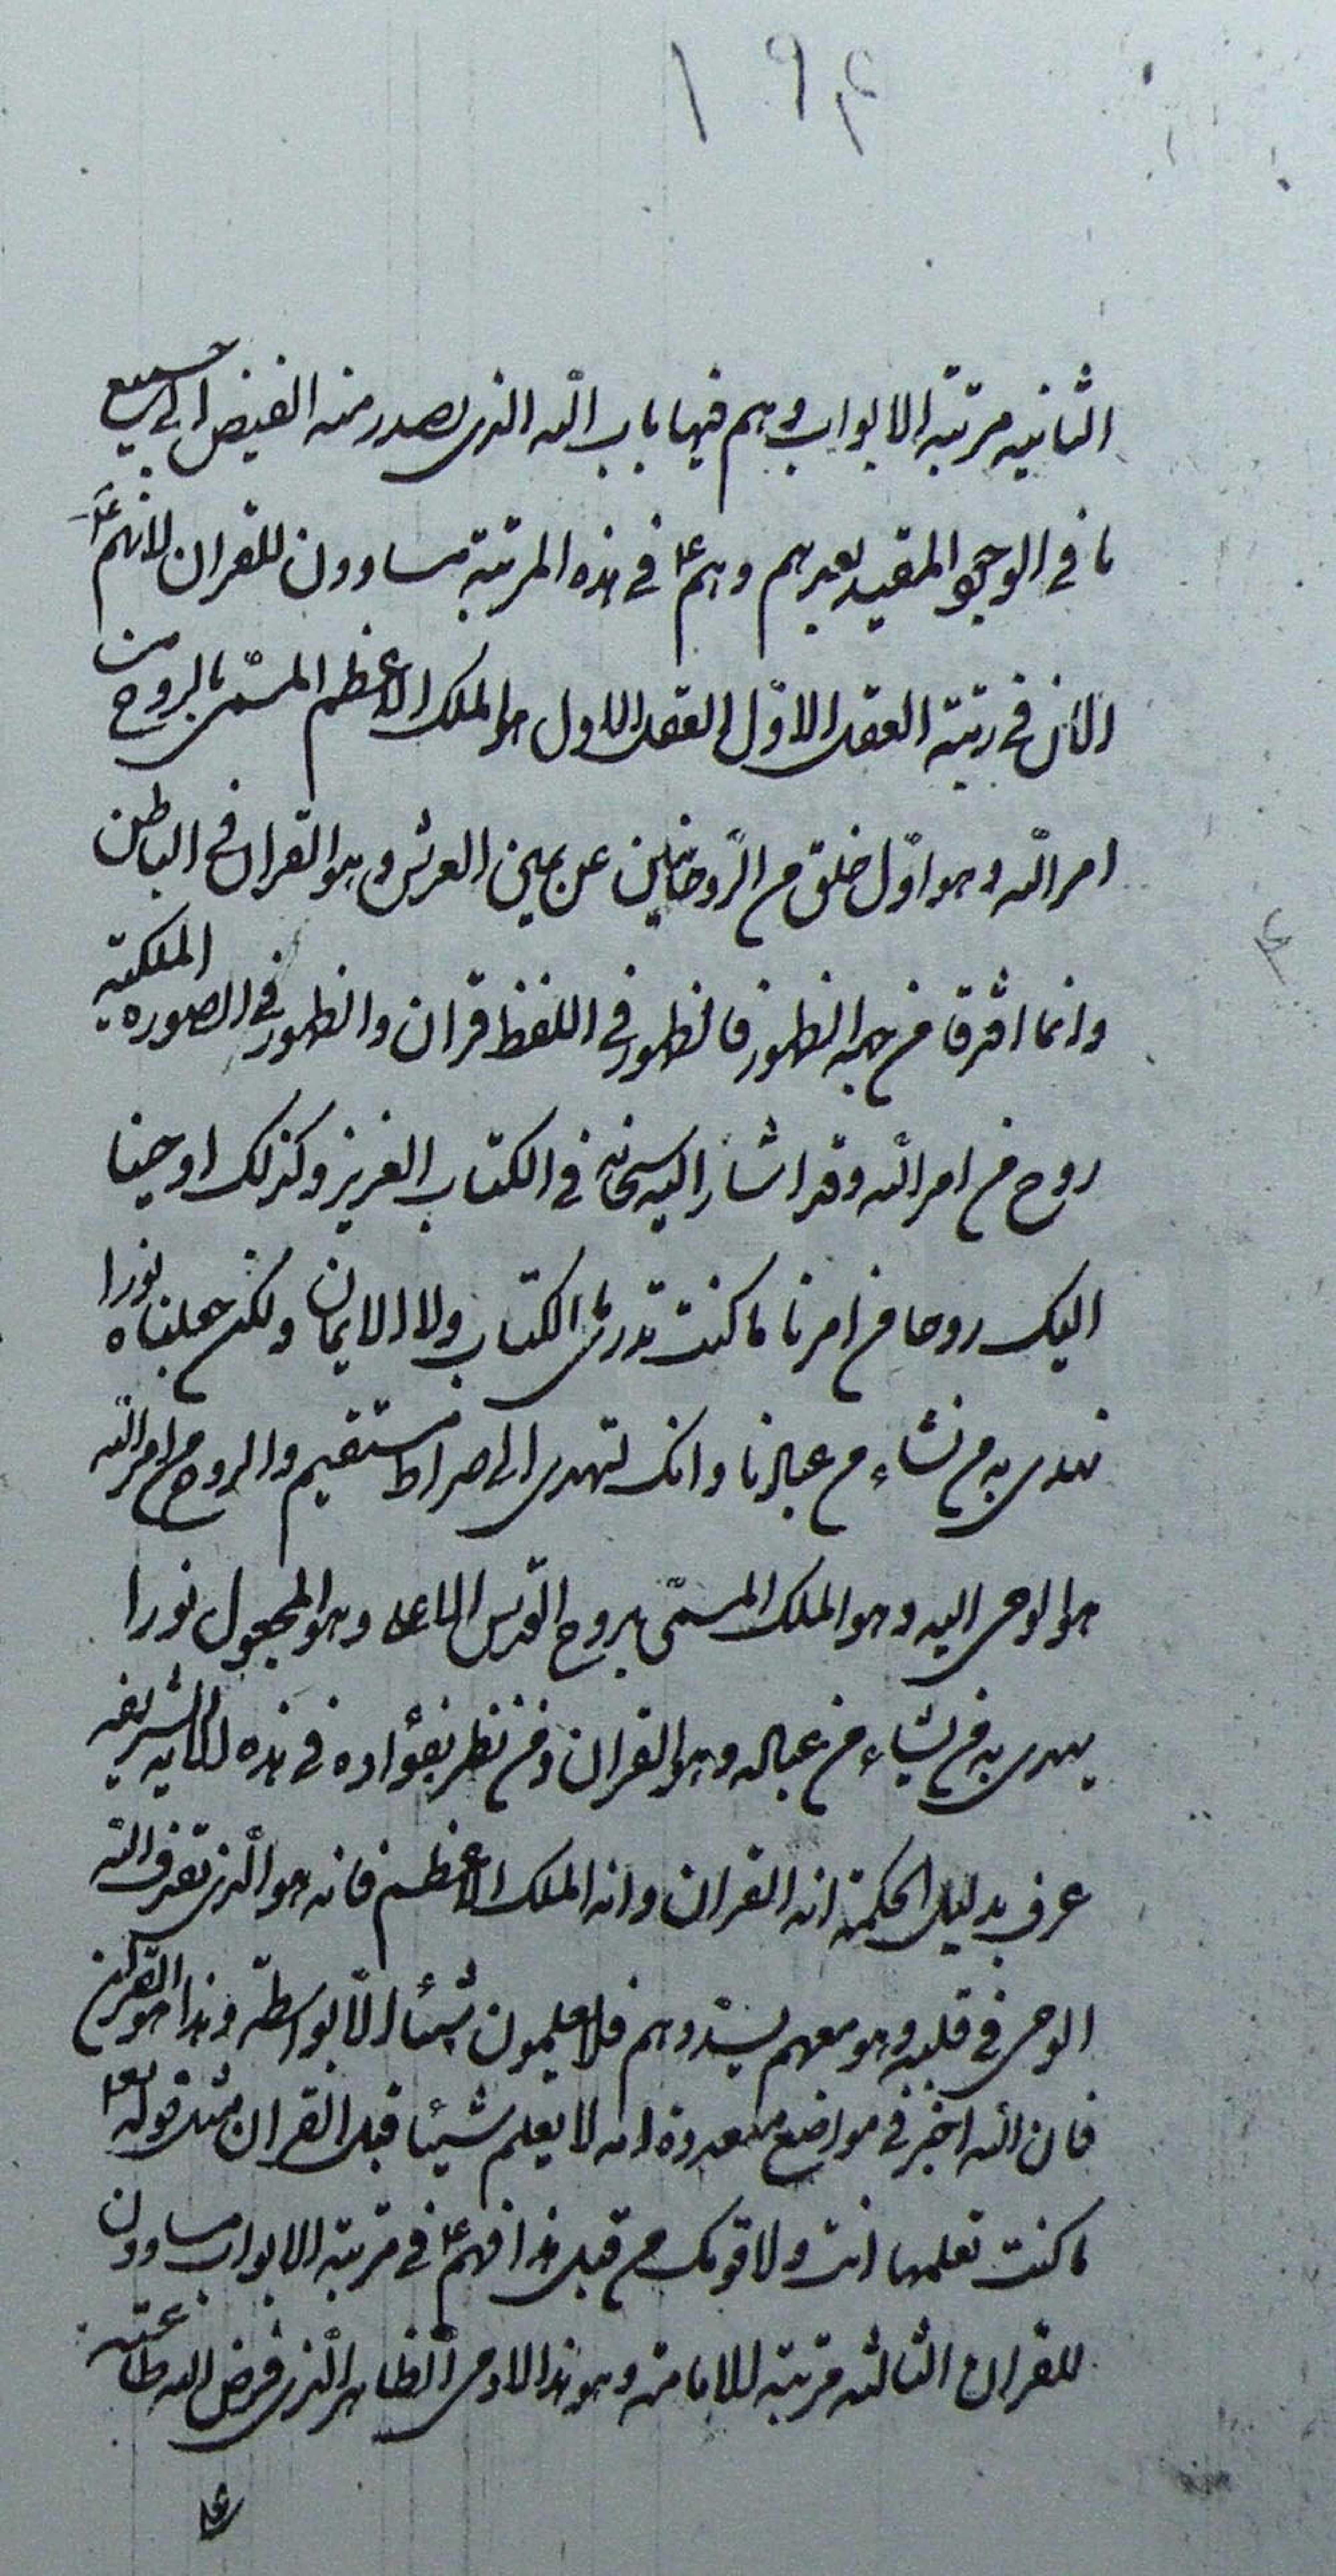 ۱۹۴
الثانیه مرتبة الابواب وهم فیها باب الله الذی یصدر منه الفیض الی جمیع
ما فی الوجود المقید بغیرهم وهم ع فی هذه المرتبة مساوون للقران لانهم ع
الان فی رتبة العقل الاوّل والعقل الاول هو الملک الاعظم المسمّی بالروح من
امر الله وهو اوّل خلق من الرّوحانیین عن یمین العرش وهو القران فی الباطن
وانما افترقا من جهة الظهور فالظهور فی اللفظ قران والظهور فی الصوره الملکیّه
روح من امر الله وقد اشار الیه سبحانه فی الکتاب العزیز وکذلک اوحینا
الیک روحا من امرنا ما کنت تدری ما الکتاب ولا الایمان ولکن جعلناه نورا
نهدی به من نشاء من عبادنا وانک لتهدی الی صراط مستقیم والروح من امر الله
هو الوحی الیه وهو الملک المسمّی بروح القدس الاعلی وهو المجعول نورا
یهدی به من یشاء من عباده وهو القران ومن نظر بفؤاده فی هذه الایه الشریفه
عرف بدلیل الحکمة انه القران وانه الملک الاعظم فانه هو الّذی تقذف الله
الوحی فی قلبه وهو معهم یسدّدهم فلا یعلمون شیئا الّا بواسطته وهذا هو القران
فان الله اخبر فی مواضع متعدده انه لا یعلم شیئا قبل القران مثل قوله تعالی
ما کنت تعلمها انت ولا قومک من قبل هذا فهم ع فی مرتبة الابواب مساوون
للقران الثالثه مرتبة الامامة وهو هذا الادمی الظاهر الّذی فرض الله طاعته
علی